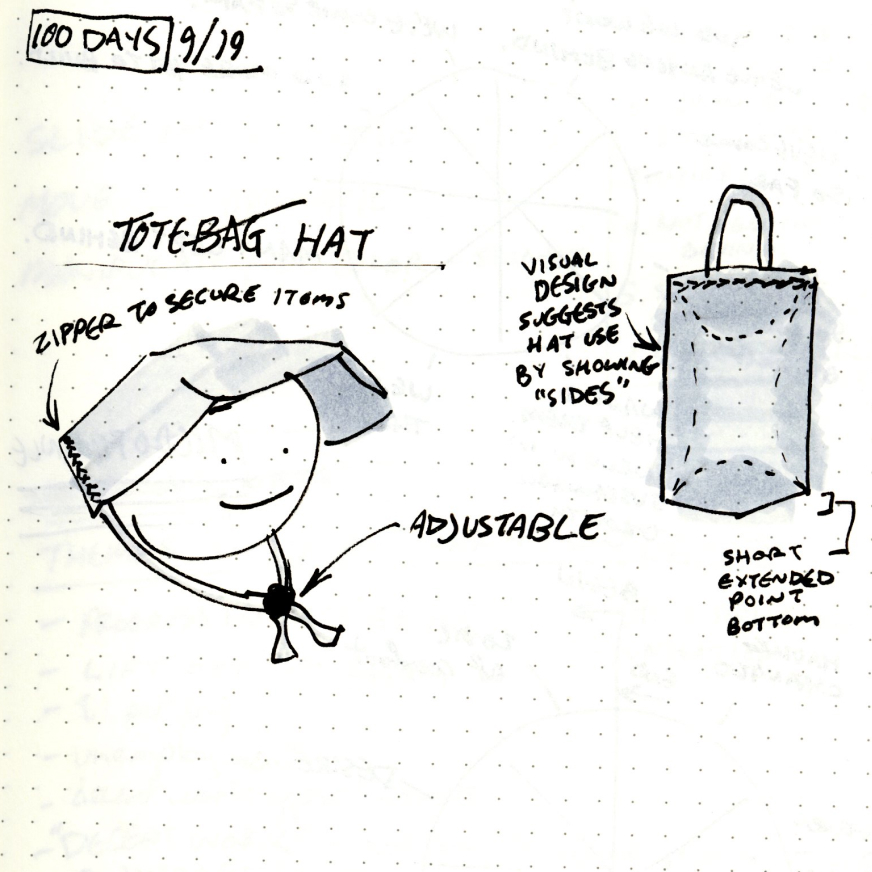 100 DAYS 9/19
TOTE-BAG HAT
ZIPPER TO SECURE ITEMS
ADJUSTABLE
VISUAL
DESIGN
SUGGESTS
HAT USE
BY SHOWING
"SIDES"
SHORT
EXTENDED
POINT
BOTTOM